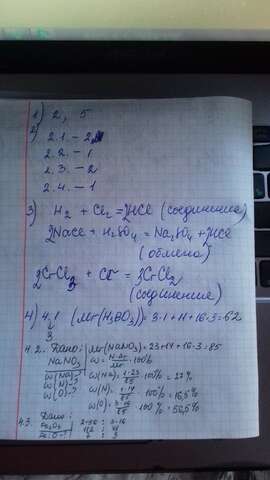 1) 2, 5
2) 2.1. - 2
2.2. - 1
2.3. - 2
2.4. - 1
3) H2 + Cl2 = 2HCl (соединение)
2NaCl + H2SO4 = Na2SO4 + 2HCl
(обмена)
2CrCl3 + Cr = 3CrCl2
(соединение)
4) 4.1 (Mr(H3BO3)) = 3·1+11+16·3=62
3
4.2. Дано: Mr(NaNO3)=23+14+16·3=85
NaNO3 w = 100%
w(Na)-? w(Na)= 1·23/85 100%=27%
w(N)-? w(N)= 1·14/85 100%=16,5%
w(O)-? w(O)= 3·16/85 100%=56,5%
4.3. Дано:
2·56 : 3·16